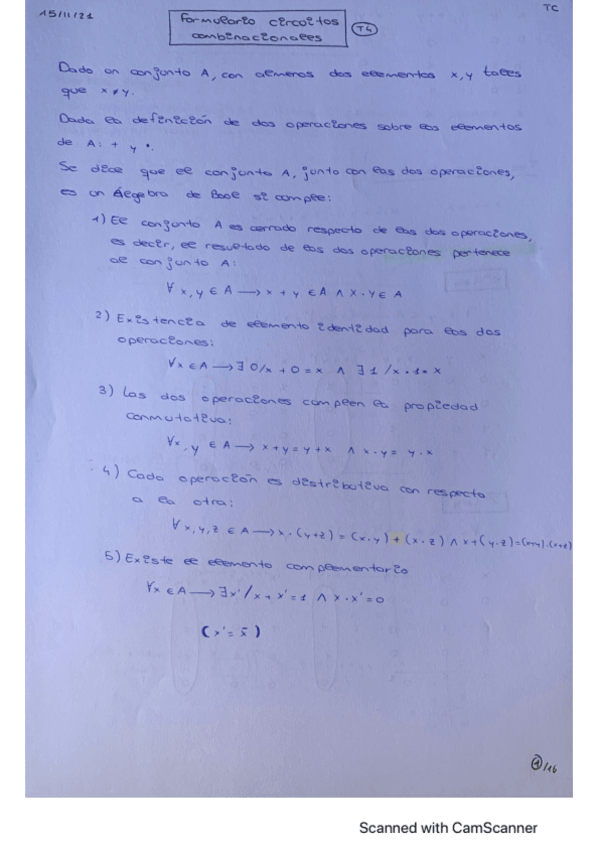 15/11/21
TC
Formulario circuitos
combinacionales
T4
Dado un conjunto A, con almenos dos elementos x, y tales
que x ≠ y.
Dada la definición de dos operaciones sobre los elementos
de A: + y ·.
Se dice que el conjunto A, junto con las dos operaciones,
es un Álgebra de Boole si cumple:
1) El conjunto A es cerrado respecto de las dos operaciones,
es decir, el resultado de las dos operaciones pertenece
al conjunto A:
∀ x, y ∈ A → x + y ∈ A ∧ x · y ∈ A
2) Existencia de elemento identidad para las dos
operaciones:
∀x ∈ A → ∃ 0/x + 0 = x ∧ ∃ 1/x · 1 = x
3) Las dos operaciones cumplen la propiedad
conmutativa:
∀x, y ∈ A → x + y = y + x ∧ x · y = y · x
4) Cada operación es distributiva con respecto
a la otra:
∀ x, y, z ∈ A → x · (y+z) = (x · y) + (x · z) ∧ x + (y · z) = (x+y) · (x+z)
5) Existe el elemento complementario
∀x ∈ A → ∃x'/x + x' = 1 ∧ x · x' = 0
(x' = x̄)
1/16
Scanned with CamScanner